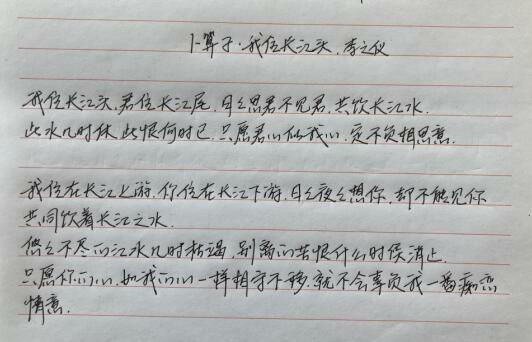 卜算子·我住长江头.李之仪
我住长江头,君住长江尾,日々思君不见君,共饮长江水.
此水几时休,此恨何时已.只愿君心似我心,定不负相思意.
我住在长江上游,你住在长江下游,日々夜々想你,却不能见你
共同饮着长江之水.
悠々不尽的江水几时枯竭,别离的苦恨什么时侯消止.
只愿你的心,如我的心一样相守不移.就不会辜负我一番痴恋
情意.